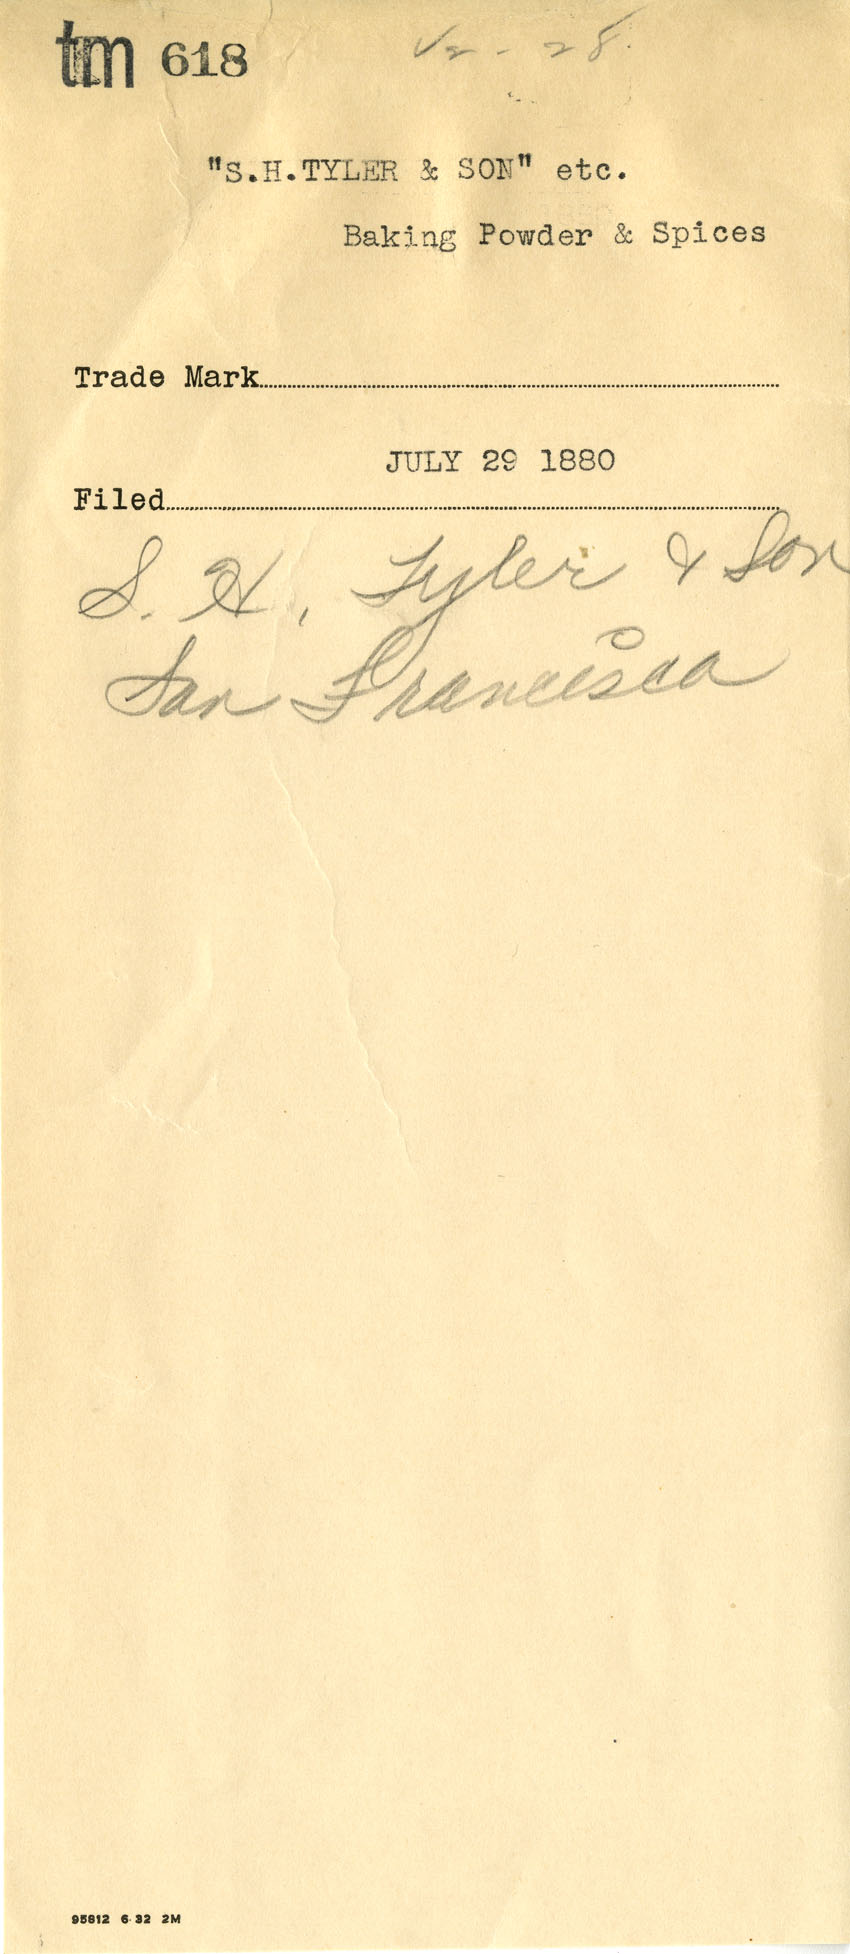 tm 618
"S.H.TYLER & SON" etc.
Baking Powder & Spices
Trade Mark
JULY 29 1880
Filed
S. H. Tyler & Son
San Francisco
95812 6-32 2M